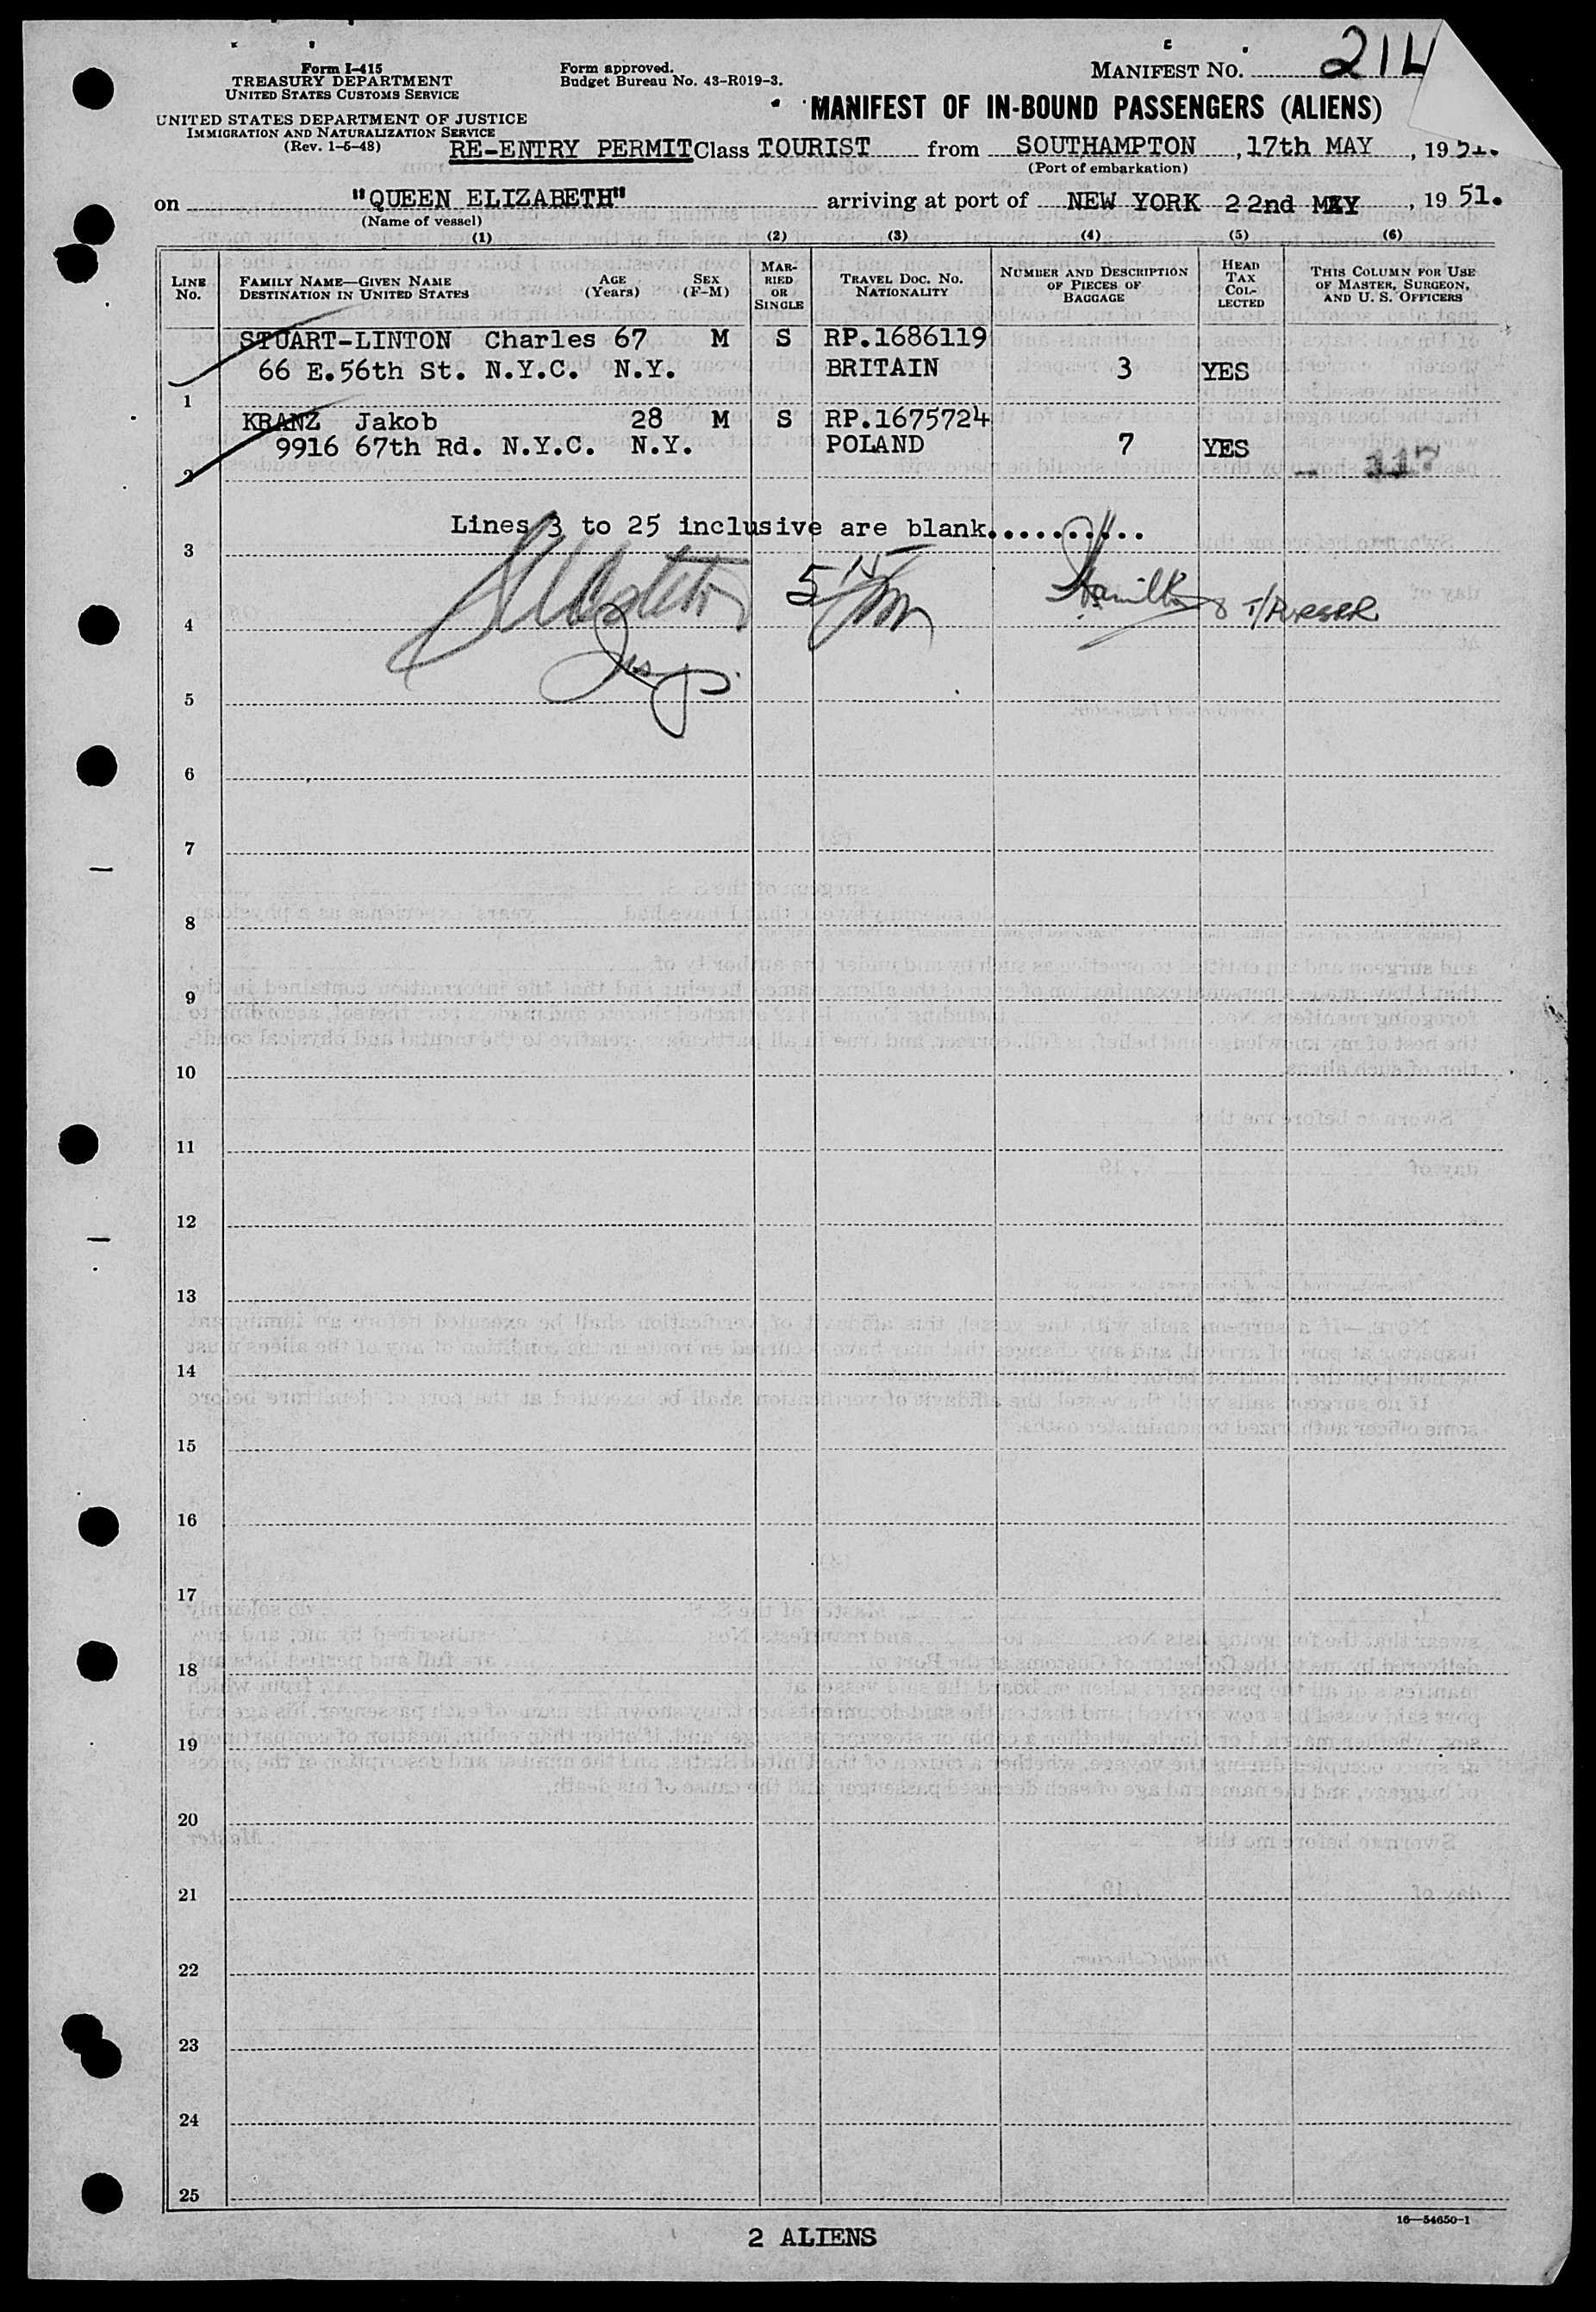 Form I-415
TREASURY DEPARTMENT
UNITED STATES CUSTOMS SERVICE
UNITED STATES DEPARTMENT OF JUSTICE
IMMIGRATION AND NATURALIZATION SERVICE
(Rev. 1-5-48)
Form approved.
Budget Bureau No. 43-R019-3.
MANIFEST No. 214
MANIFEST OF IN-BOUND PASSENGERS (ALIENS)
RE-ENTRY PERMIT Class TOURIST from SOUTHAMPTON, 17th MAY, 1951.
(Port of embarkation)
on "QUEEN ELIZABETH" arriving at port of NEW YORK 22nd MAY, 1951.
(Name of vessel)
(1) (2) (3) (4) (5) (6)
LINE No. FAMILY NAME—GIVEN NAME DESTINATION IN UNITED STATES AGE (Years) SEX (F-M) MARRIED OR SINGLE TRAVEL DOC. NO. NATIONALITY NUMBER AND DESCRIPTION OF PIECES OF BAGGAGE HEAD TAX COLLECTED THIS COLUMN FOR USE OF MASTER, SURGEON, AND U. S. OFFICERS
STUART-LINTON Charles 67 M S RP.1686119
66 E.56th St. N.Y.C. N.Y. BRITAIN 3 YES
1
KRANZ Jakob 28 M S RP.1675724
9916 67th Rd. N.Y.C. N.Y. POLAND 7 YES
2 117
Lines 3 to 25 inclusive are blank..........
3
T/PURSER
4
Insp.
5
6
7
8
9
10
11
12
13
14
15
16
17
18
19
20
21
22
23
24
25
16—54650-1
2 ALIENS